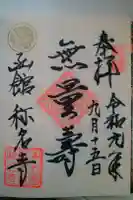 奉拝
令和元年
九月十五日
無量寿
函館 称名寺